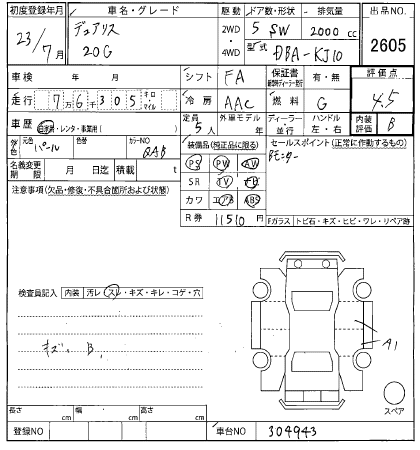 初度登録年月 車名・グレード 駆動 ドア数・形状 排気量 出品NO
23/7月 デュアリス 20G 2WD・4WD 5 SW 2000 cc 2605
型式 DBA-KJ10
車検 年 月 シフト FA 保証書 有・無 評価点
走行 7万6千305 キロ マイル 冷房 AAC 燃料 G 4.5
車歴 自家用・レンタ・事業用( ) 定員 5人 外車モデル 年 ディーラー・並行 ハンドル 左・右 内装評価 B
元色 パール 色替 カラーNO QAB
装備品(純正品に限る) セールスポイント(正常に動作するもの)
名義変更期限 月 日迄 積載 t
PS PW AW Bモニター
注意事項(欠品・修復・不具合箇所および状態) SR TV ナビ
カワ エアB ABS
R券 11510円 Fガラス トビ石・キズ・ヒビ・ワレ・リペア跡
検査員記入 内装 汚レ・スレ・キズ・キレ・コゲ・穴
キズ、B、
A1
スペア
長さ cm 幅 cm 高さ cm
登録NO 車台NO 304943